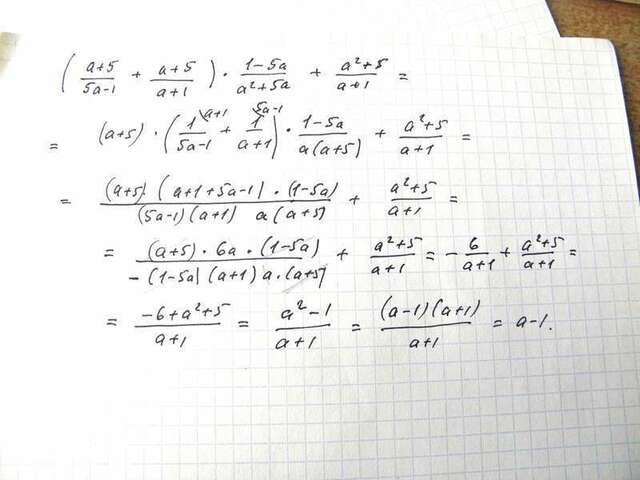 ( (a+5)/(5a-1) + (a+5)/(a+1) ) · (1-5a)/(a²+5a) + (a²+5)/(a+1) =
= (a+5) · ( 1/(5a-1) \a+1 + 1/(a+1) \5a-1 ) · (1-5a)/(a(a+5)) + (a²+5)/(a+1) =
= ((a+5) · (a+1+5a-1) · (1-5a))/((5a-1)(a+1) a(a+5)) + (a²+5)/(a+1) =
= ((a+5) · 6a · (1-5a))/(-(1-5a)(a+1)a·(a+5)) + (a²+5)/(a+1) = -6/(a+1) + (a²+5)/(a+1) =
= (-6+a²+5)/(a+1) = (a²-1)/(a+1) = ((a-1)(a+1))/(a+1) = a-1.